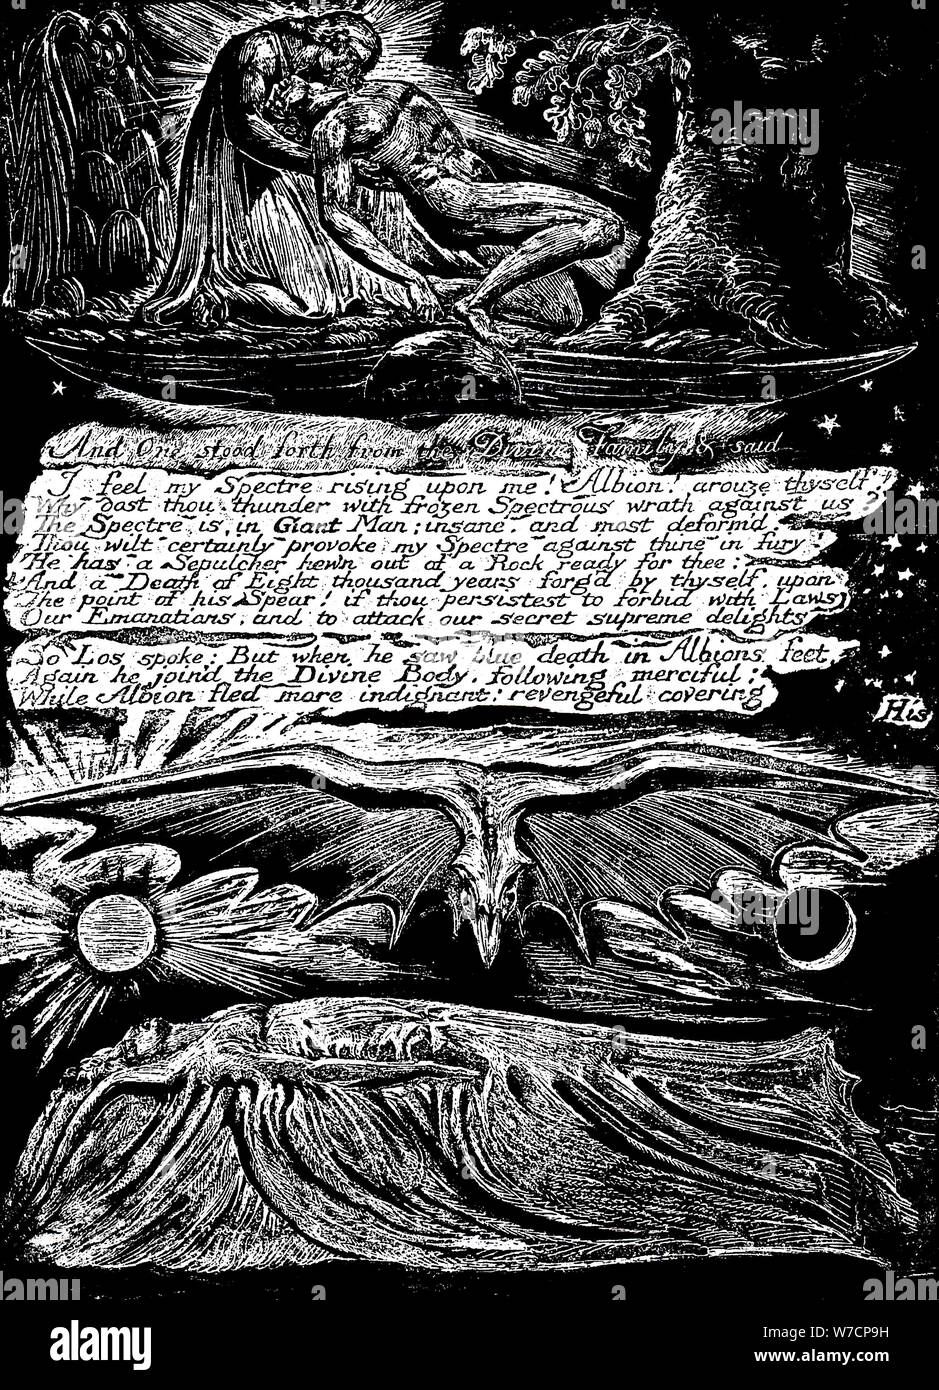 And One stood forth from the Divine Family & said
I feel my Spectre rising upon me! Albion! arouze thyself!
Why dost thou thunder with frozen Spectrous wrath against us
The Spectre is in Giant Man; insane and most deform'd.
Thou wilt certainly provoke my Spectre against thine in fury
He has a Sepulcher hewn out of a Rock ready for thee:
And a Death of Eight thousand years forg'd by thyself, upon
The point of his Spear! if thou persistest to forbid with Laws
Our Emanations, and to attack our secret supreme delights
So Los spoke: But when he saw blue death in Albions feet
Again he join'd the Divine Body, following merciful;
While Albion fled more indignant! revengeful covering
His
alamy
Image ID: W7CP9H
www.alamy.com